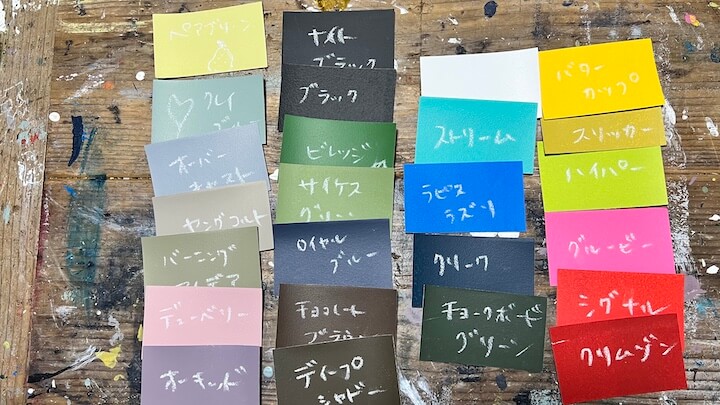 ペアグリーン
クレイ
ブルー
オーバー
キャスト
ヤングコルト
バーニング
アイデア
デューベリー
オーキッド
ナイト
ブラック
ブラック
ビレッジ
サイケス
グリーン
ロイヤル
ブルー
チョコレート
ブラウン
ディープ
シャドー
ストリーム
ラピス
ラズリ
クリーク
チョークボード
グリーン
バター
カップ
スリッカー
ハイパー
グルービー
シグナル
クリムゾン